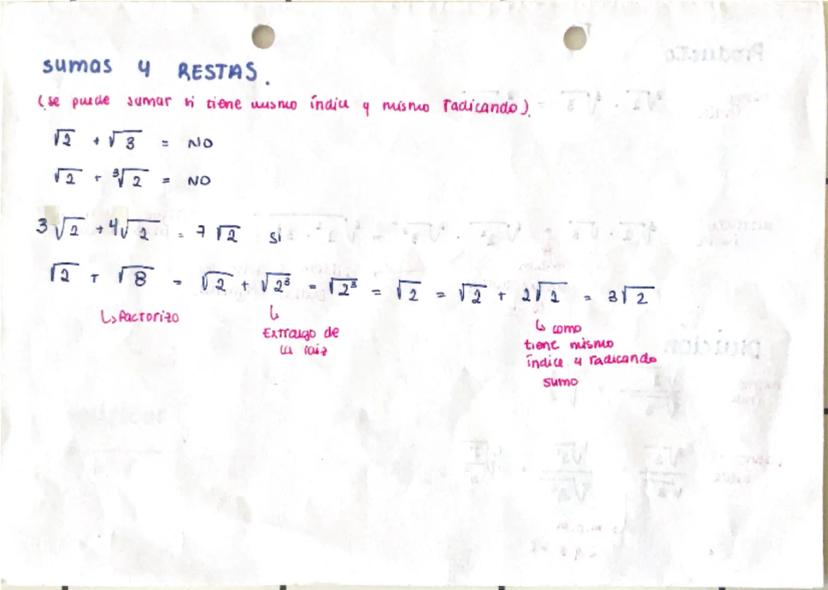 SUMAS Y RESTAS.
(se puede sumar si tiene mismo índice y mismo radicando).
√2 + √3 = NO
√2 + ³√2 = NO
3√2 + 4√2 = 7√2 si
√2 + √8 = √2 + √2³ = √2³ = √2 = √2 + 2√2 = 3√2
↳ Factorizo
↳ Extraigo de la raiz
↳ como tiene mismo índice y radicando sumo